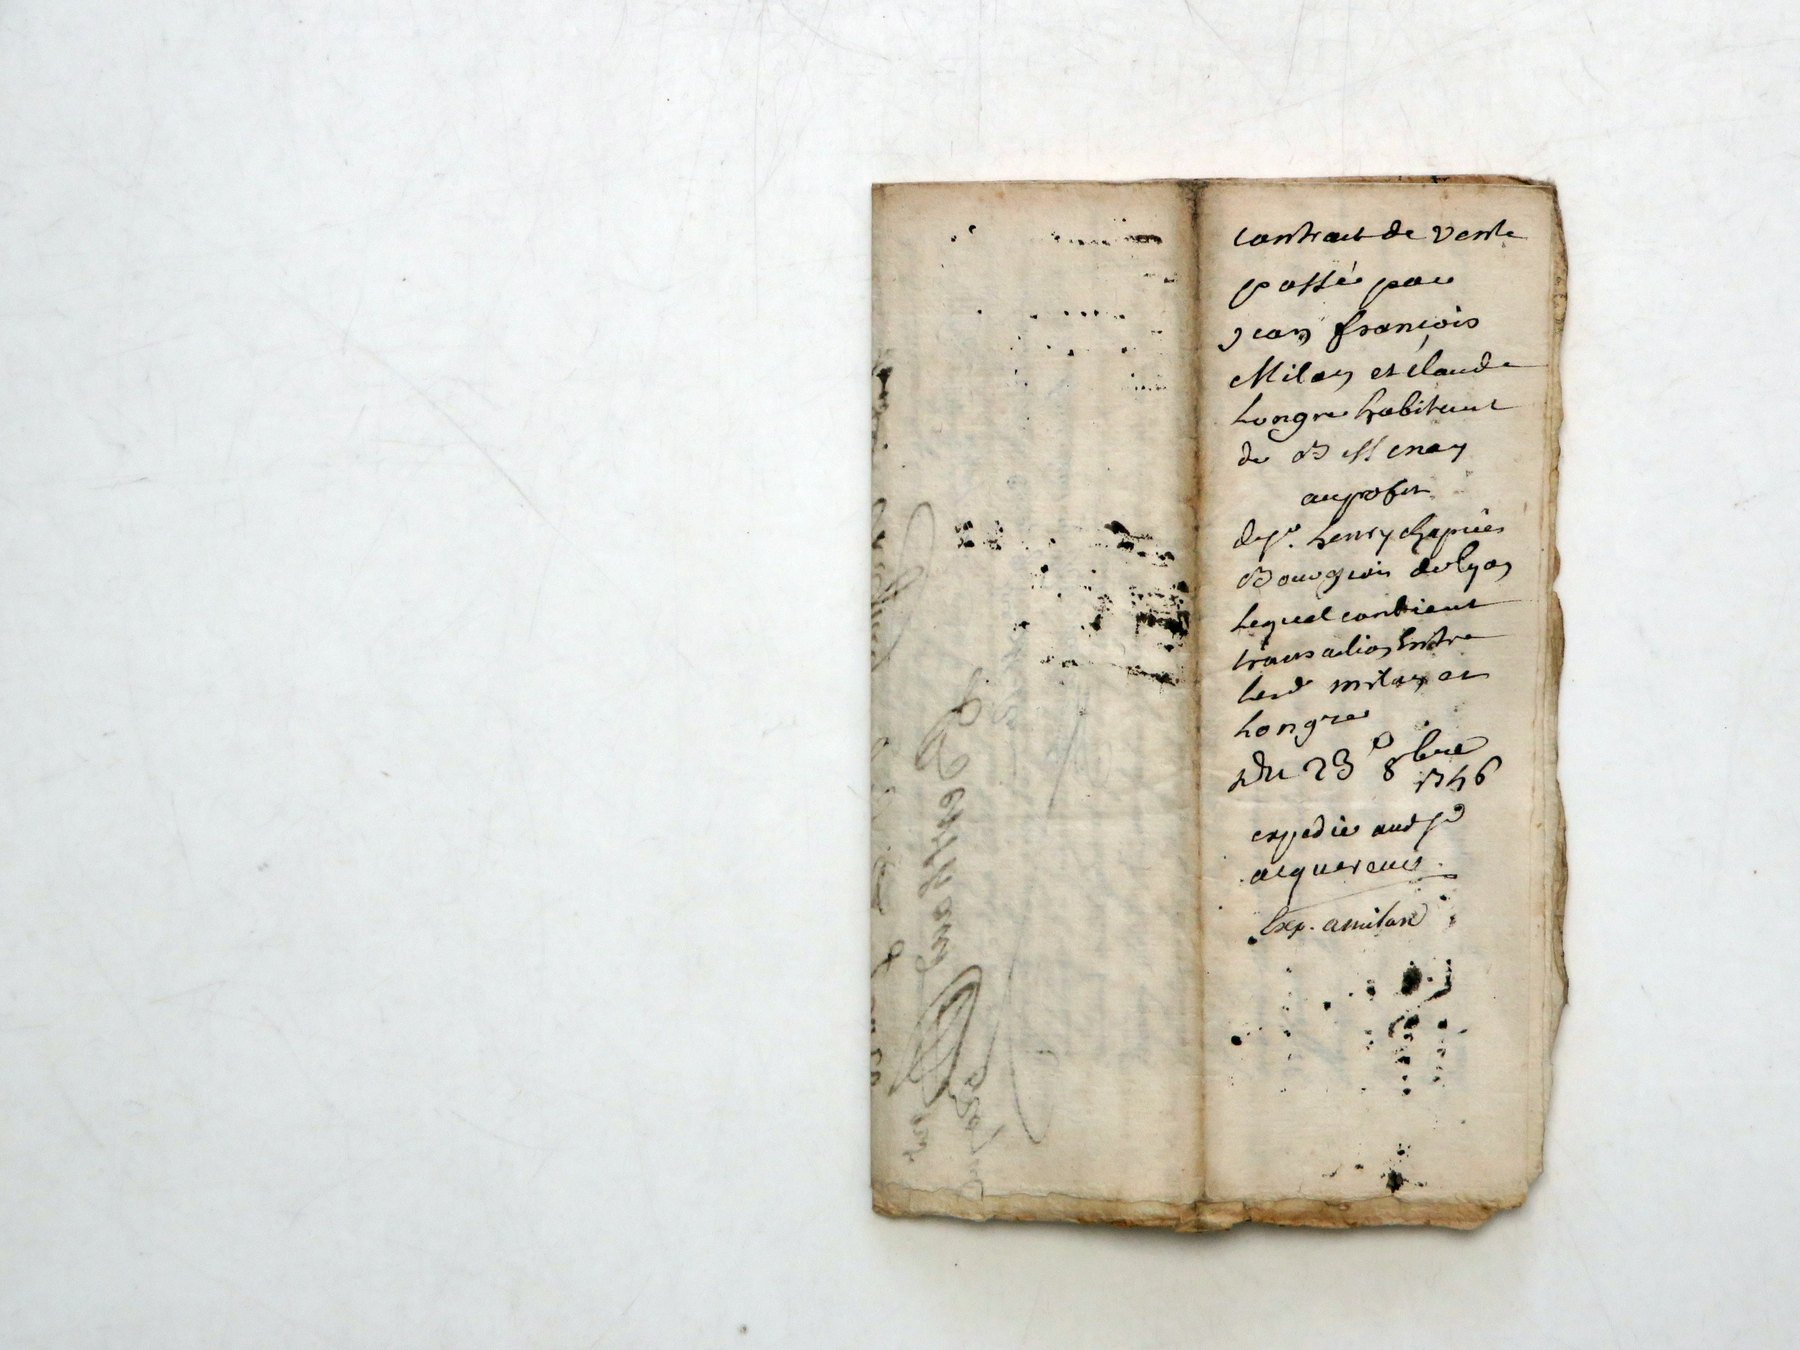 contract de vente
passée par
jean françois
Milan et Claude
Longre habitant
de Bessenay
au profit
de sr. henry chapuies
Bourgeois de lyon
Lequel contient
transaction Entre
lesd milan et
Longre
Du 23e 8bre
1746
expedié aud sr
acquereur
Exp. a milan